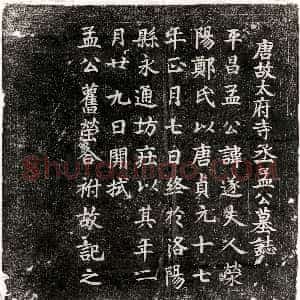 唐故太府寺丞孟公墓誌
平昌孟公諱遂夫人滎
陽鄭氏以唐貞元十七
年正月七日終於洛陽
縣永通坊莊以其年二
月廿九日開拭
孟公舊塋合祔故記之